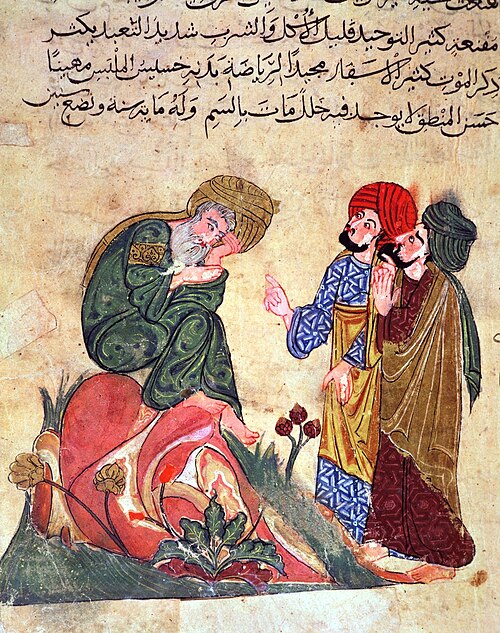 مقنعه كثير التوحد قليل الأكل والشرب شديد التعبد يكثر
ذكر الموت كثير الاسفار مجيدا لرياضة بدنه خسيس الملبس مهيبا
حسن المنطق لا يوجد فيه خلل مات بالسم وله مايه سنة وبضع سنين